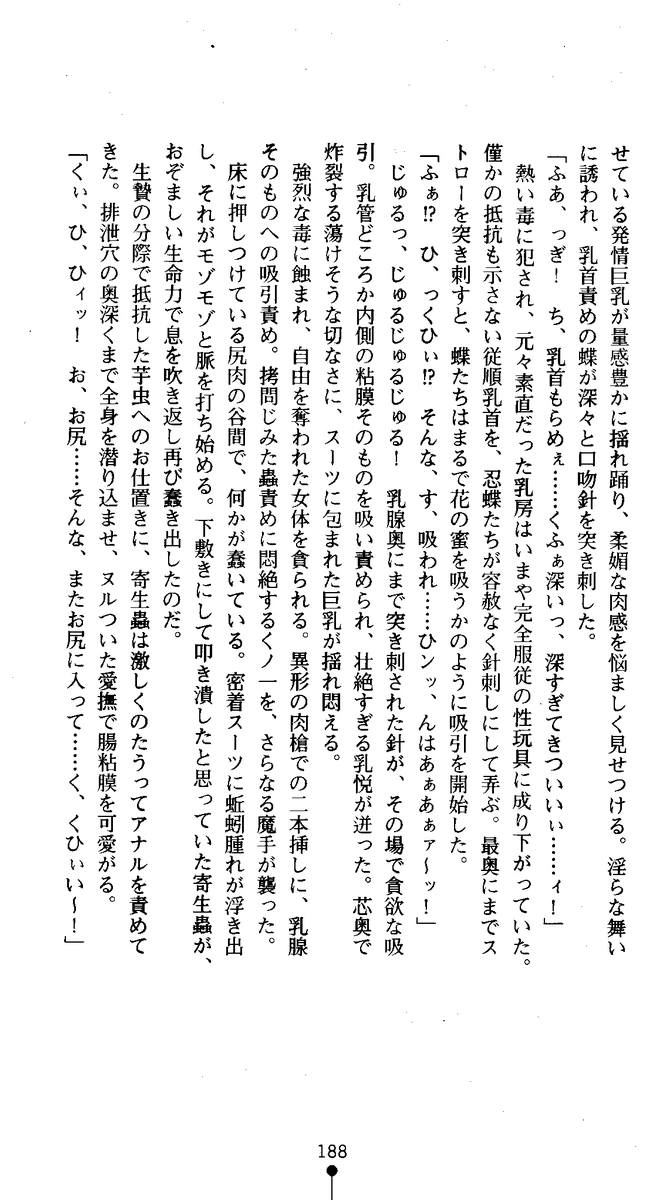 せている発情巨乳が量感豊かに揺れ踊り、柔媚な肉感を悩ましく見せつける。淫らな舞い
に誘われ、乳首責めの蝶が深々と口吻針を突き刺した。
「ふあ、っぎ！　ち、乳首もらめぇ……くふぁ深いっ、深すぎてきついいぃ……ィ！」
　熱い毒に犯され、元々素直だった乳房はいまや完全服従の性玩具に成り下がっていた。
僅かの抵抗も示さない従順乳首を、忍蝶たちが容赦なく針刺しにして弄ぶ。最奥にまでス
トローを突き刺すと、蝶たちはまるで花の蜜を吸うかのように吸引を開始した。
「ふぁ!?　ひ、っくひぃ!?　そんな、す、吸われ……ひンッ、んはあぁあぁァ～ッ！」
　じゅるっ、じゅるじゅるじゅる！　乳腺奥にまで突き刺された針が、その場で貪欲な吸
引。乳管どころか内側の粘膜そのものを吸い責められ、壮絶すぎる乳悦が迸った。芯奥で
炸裂する蕩けそうな切なさに、スーツに包まれた巨乳が揺れ悶える。
　強烈な毒に蝕まれ、自由を奪われた女体を貪られる。異形の肉槍での二本挿しに、乳腺
そのものへの吸引責め。拷問じみた蟲責めに悶絶するくノ一を、さらなる魔手が襲った。
　床に押しつけている尻肉の谷間で、何かが蠢いている。密着スーツに蚯蚓腫れが浮き出
し、それがモゾモゾと脈を打ち始める。下敷きにして叩き潰したと思っていた寄生蟲が、
おぞましい生命力で息を吹き返し再び蠢き出したのだ。
　生贄の分際で抵抗した芋虫へのお仕置きに、寄生蟲は激しくのたうってアナルを責めて
きた。排泄穴の奥深くまで全身を潜り込ませ、ヌルついた愛撫で腸粘膜を可愛がる。
「くぃ、ひ、ひィッ！　お、お尻……そんな、またお尻に入って……く、くひぃい～！」
188